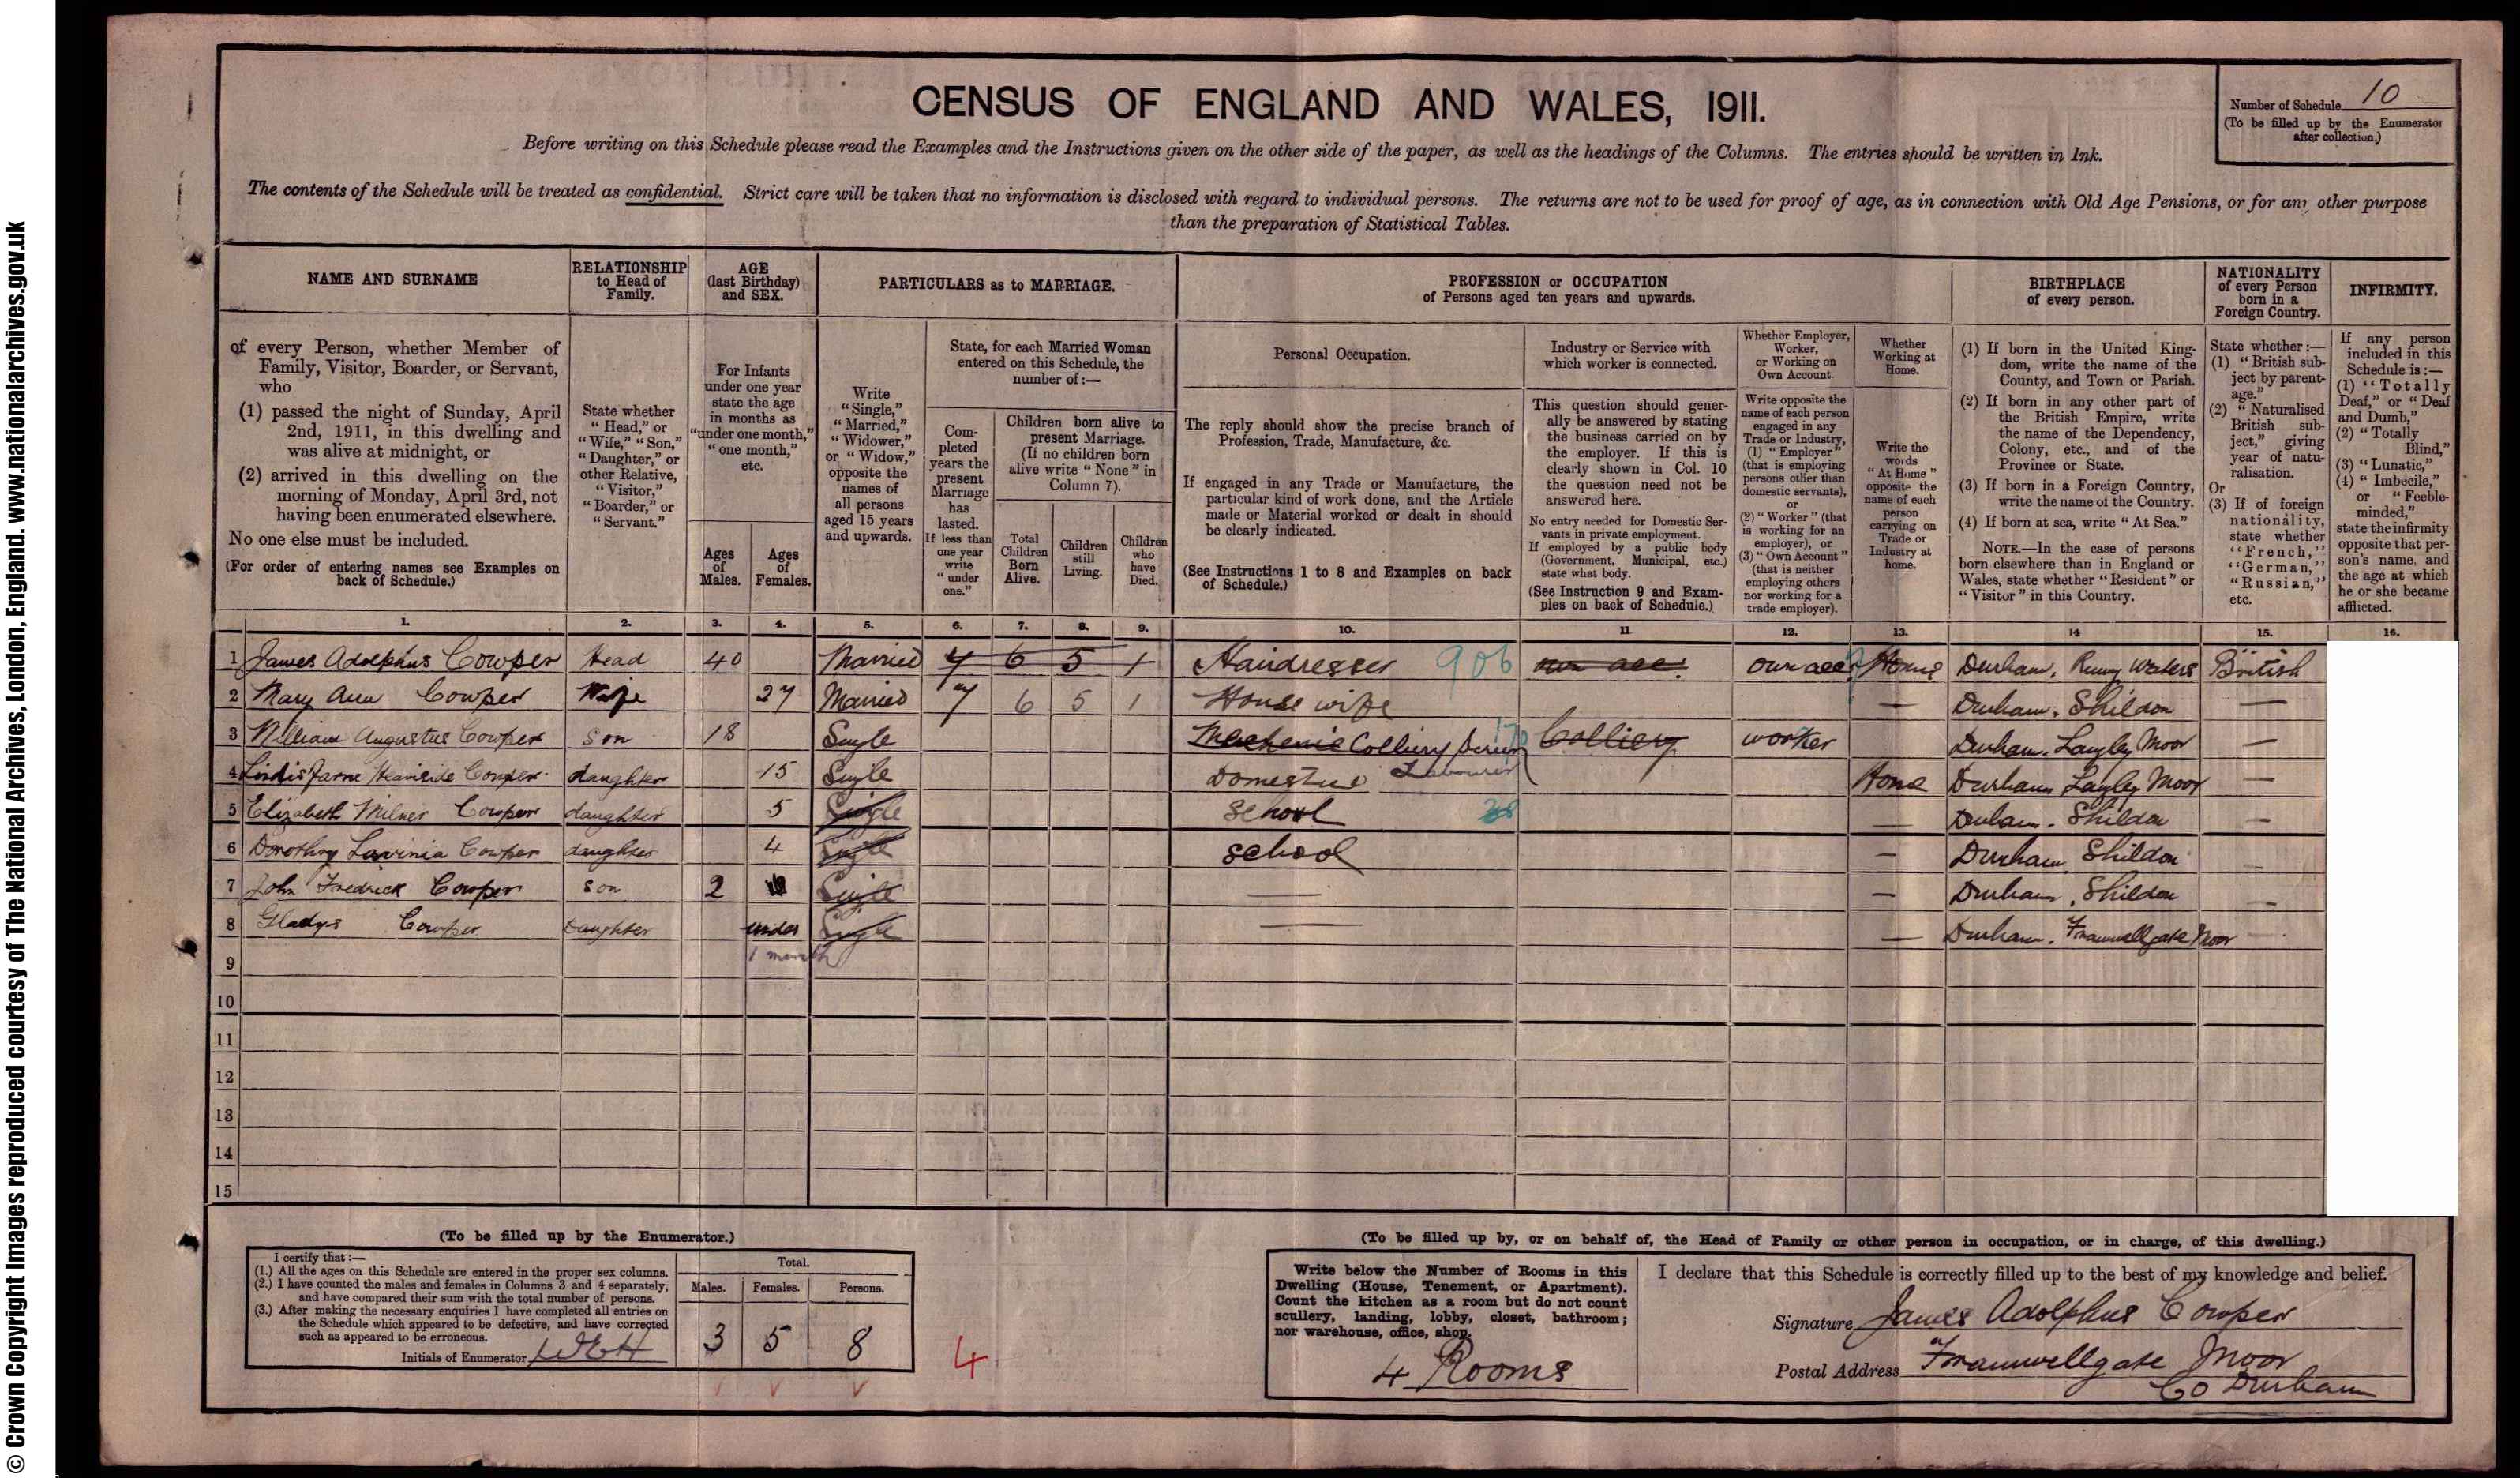 © Crown Copyright Images reproduced courtesy of The National Archives, London, England. www.nationalarchives.gov.uk
CENSUS OF ENGLAND AND WALES, 1911.
Number of Schedule 10
(To be filled up by the Enumerator
after collection.)
Before writing on this Schedule please read the Examples and the Instructions given on the other side of the paper, as well as the headings of the Columns. The entries should be written in Ink.
The contents of the Schedule will be treated as confidential. Strict care will be taken that no information is disclosed with regard to individual persons. The returns are not to be used for proof of age, as in connection with Old Age Pensions, or for any other purpose
than the preparation of Statistical Tables.
NAME AND SURNAME
of every Person, whether Member of
Family, Visitor, Boarder, or Servant,
who
(1) passed the night of Sunday, April
2nd, 1911, in this dwelling and
was alive at midnight, or
(2) arrived in this dwelling on the
morning of Monday, April 3rd, not
having been enumerated elsewhere.
No one else must be included.
(For order of entering names see Examples on
back of Schedule.)
RELATIONSHIP
to Head of
Family.
State whether
"Head," or
"Wife," "Son,"
"Daughter," or
other Relative,
"Visitor,"
"Boarder," or
"Servant."
AGE
(last Birthday)
and SEX.
For Infants
under one year
state the age
in months as
"under one month,"
"one month,"
etc.
Ages
of
Males.
Ages
of
Females.
PARTICULARS as to MARRIAGE.
Write
"Single,"
"Married,"
"Widower,"
or "Widow,"
opposite the
names of
all persons
aged 15 years
and upwards.
State, for each Married Woman
entered on this Schedule, the
number of:—
Com-
pleted
years the
present
Marriage
has
lasted.
If less than
one year
write
"under
one."
Children born alive to
present Marriage.
(If no children born
alive write "None" in
Column 7).
Total
Children
Born
Alive.
Children
still
Living.
Children
who
have
Died.
PROFESSION or OCCUPATION
of Persons aged ten years and upwards.
Personal Occupation.
The reply should show the precise branch of
Profession, Trade, Manufacture, &c.
If engaged in any Trade or Manufacture, the
particular kind of work done, and the Article
made or Material worked or dealt in should
be clearly indicated.
(See Instructions 1 to 8 and Examples on back
of Schedule.)
Industry or Service with
which worker is connected.
This question should gener-
ally be answered by stating
the business carried on by
the employer. If this is
clearly shown in Col. 10
the question need not be
answered here.
No entry needed for Domestic Ser-
vants in private employment.
If employed by a public body
(Government, Municipal, etc.)
state what body.
(See Instruction 9 and Exam-
ples on back of Schedule.)
Whether Employer,
Worker,
or Working on
Own Account.
Write opposite the
name of each person
engaged in any
Trade or Industry,
(1) "Employer"
(that is employing
persons other than
domestic servants),
or
(2) "Worker" (that
is working for an
employer), or
(3) "Own Account"
(that is neither
employing others
nor working for a
trade employer).
Whether
Working at
Home.
Write the
words
"At Home"
opposite the
name of each
person
carrying on
Trade or
Industry at
home.
BIRTHPLACE
of every person.
(1) If born in the United King-
dom, write the name of the
County, and Town or Parish.
(2) If born in any other part of
the British Empire, write
the name of the Dependency,
Colony, etc., and of the
Province or State.
(3) If born in a Foreign Country,
write the name of the Country.
(4) If born at sea, write "At Sea."
NOTE.—In the case of persons
born elsewhere than in England or
Wales, state whether "Resident" or
"Visitor" in this Country.
NATIONALITY
of every Person
born in a
Foreign Country.
State whether:—
(1) "British sub-
ject by parent-
age."
(2) "Naturalised
British sub-
ject," giving
year of natu-
ralisation.
Or
(3) If of foreign
nationality,
state whether
"French,"
"German,"
"Russian,"
etc.
INFIRMITY.
If any person
included in this
Schedule is:—
(1) "Totally
Deaf," or "Deaf
and Dumb,"
(2) "Totally
Blind,"
(3) "Lunatic,"
(4) "Imbecile,"
or "Feeble-
minded,"
state the infirmity
opposite that per-
son's name, and
the age at which
he or she became
afflicted.
1. 2. 3. 4. 5. 6. 7. 8. 9. 10. 11 12. 13. 14 15. 16.
1 James Adolphus Cowper Head 40 Married 7 6 5 1 Hairdresser 906 own acc. own acc. Home Durham, Running Waters British
2 Mary Ann Cowper Wife 27 Married 7 6 5 1 House wife — Durham. Shildon —
3 William Augustus Cowper son 18 Single Mechanic Colliery Colliery worker Durham. Langley Moor —
4 Lindisfarne Heaviside Cowper daughter 15 Single Domestic Labourer Home Durham Langley Moor —
5 Elizabeth Milner Cowper daughter 5 Single School — Durham. Shildon —
6 Dorothy Lavinia Cowper daughter 4 Single School — Durham Shildon
7 John Fredrick Cowper son 2 Single — — Durham, Shildon —
8 Gladys Cowper Daughter under Single — — Durham. Framwellgate Moor
1 month
9
10
11
12
13
14
15
(To be filled up by the Enumerator.)
I certify that:—
(1.) All the ages on this Schedule are entered in the proper sex columns.
(2.) I have counted the males and females in Columns 3 and 4 separately,
and have compared their sum with the total number of persons.
(3.) After making the necessary enquiries I have completed all entries on
the Schedule which appeared to be defective, and have corrected
such as appeared to be erroneous.
Initials of Enumerator
Total.
Males. Females. Persons.
3 5 8
4
(To be filled up by, or on behalf of, the Head of Family or other person in occupation, or in charge, of this dwelling.)
Write below the Number of Rooms in this
Dwelling (House, Tenement, or Apartment).
Count the kitchen as a room but do not count
scullery, landing, lobby, closet, bathroom;
nor warehouse, office, shop.
4 Rooms
I declare that this Schedule is correctly filled up to the best of my knowledge and belief.
Signature James Adolphus Cowper
Postal Address Framwellgate Moor
Co Durham